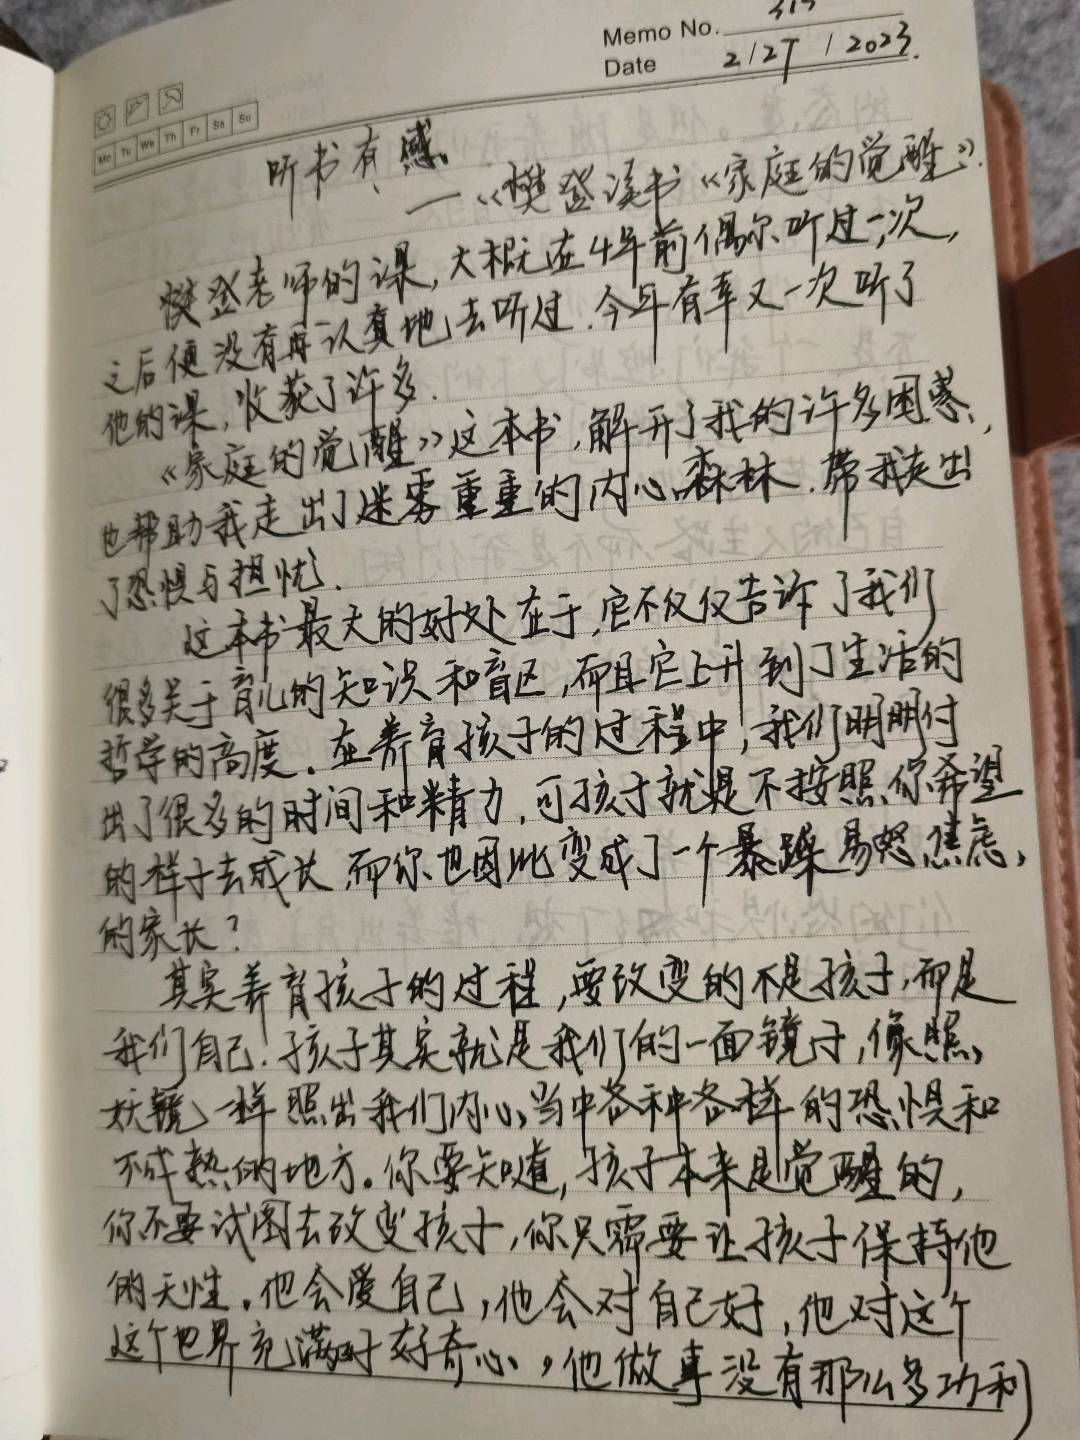 Memo No.
Date 2/27/2023.
Mo Tu We Th Fr Sa Su
听书有感
—《樊登读书《家庭的觉醒》》.
樊登老师的课,大概在4年前偶尔听过一次,
之后便没有再认真地去听过.今年有幸又一次听了
他的课,收获了许多.
《家庭的觉醒》这本书,解开了我的许多困惑,
也帮助我走出了迷雾重重的内心森林.带我走出
了恐惧与担忧.
这本书最大的好处在于,它不仅仅告诉了我们
很多关于育儿的知识和盲区,而且它上升到了生活的
哲学的高度.在养育孩子的过程中,我们明明付
出了很多的时间和精力,可孩子就是不按照你希望
的样子去成长,而你也因此变成了一个暴躁易怒焦虑,
的家长?
其实养育孩子的过程,要改变的不是孩子,而是
我们自己!孩子其实就是我们的一面镜子,像照
妖镜一样照出我们内心当中各种各样的恐惧和
不成熟的地方。你要知道,孩子本来是觉醒的,
你不要试图去改变孩子,你只需要让孩子保持他
的天性。他会爱自己,他会对自己好,他对这个
这个世界充满了好奇心,他做事没有那么多功利